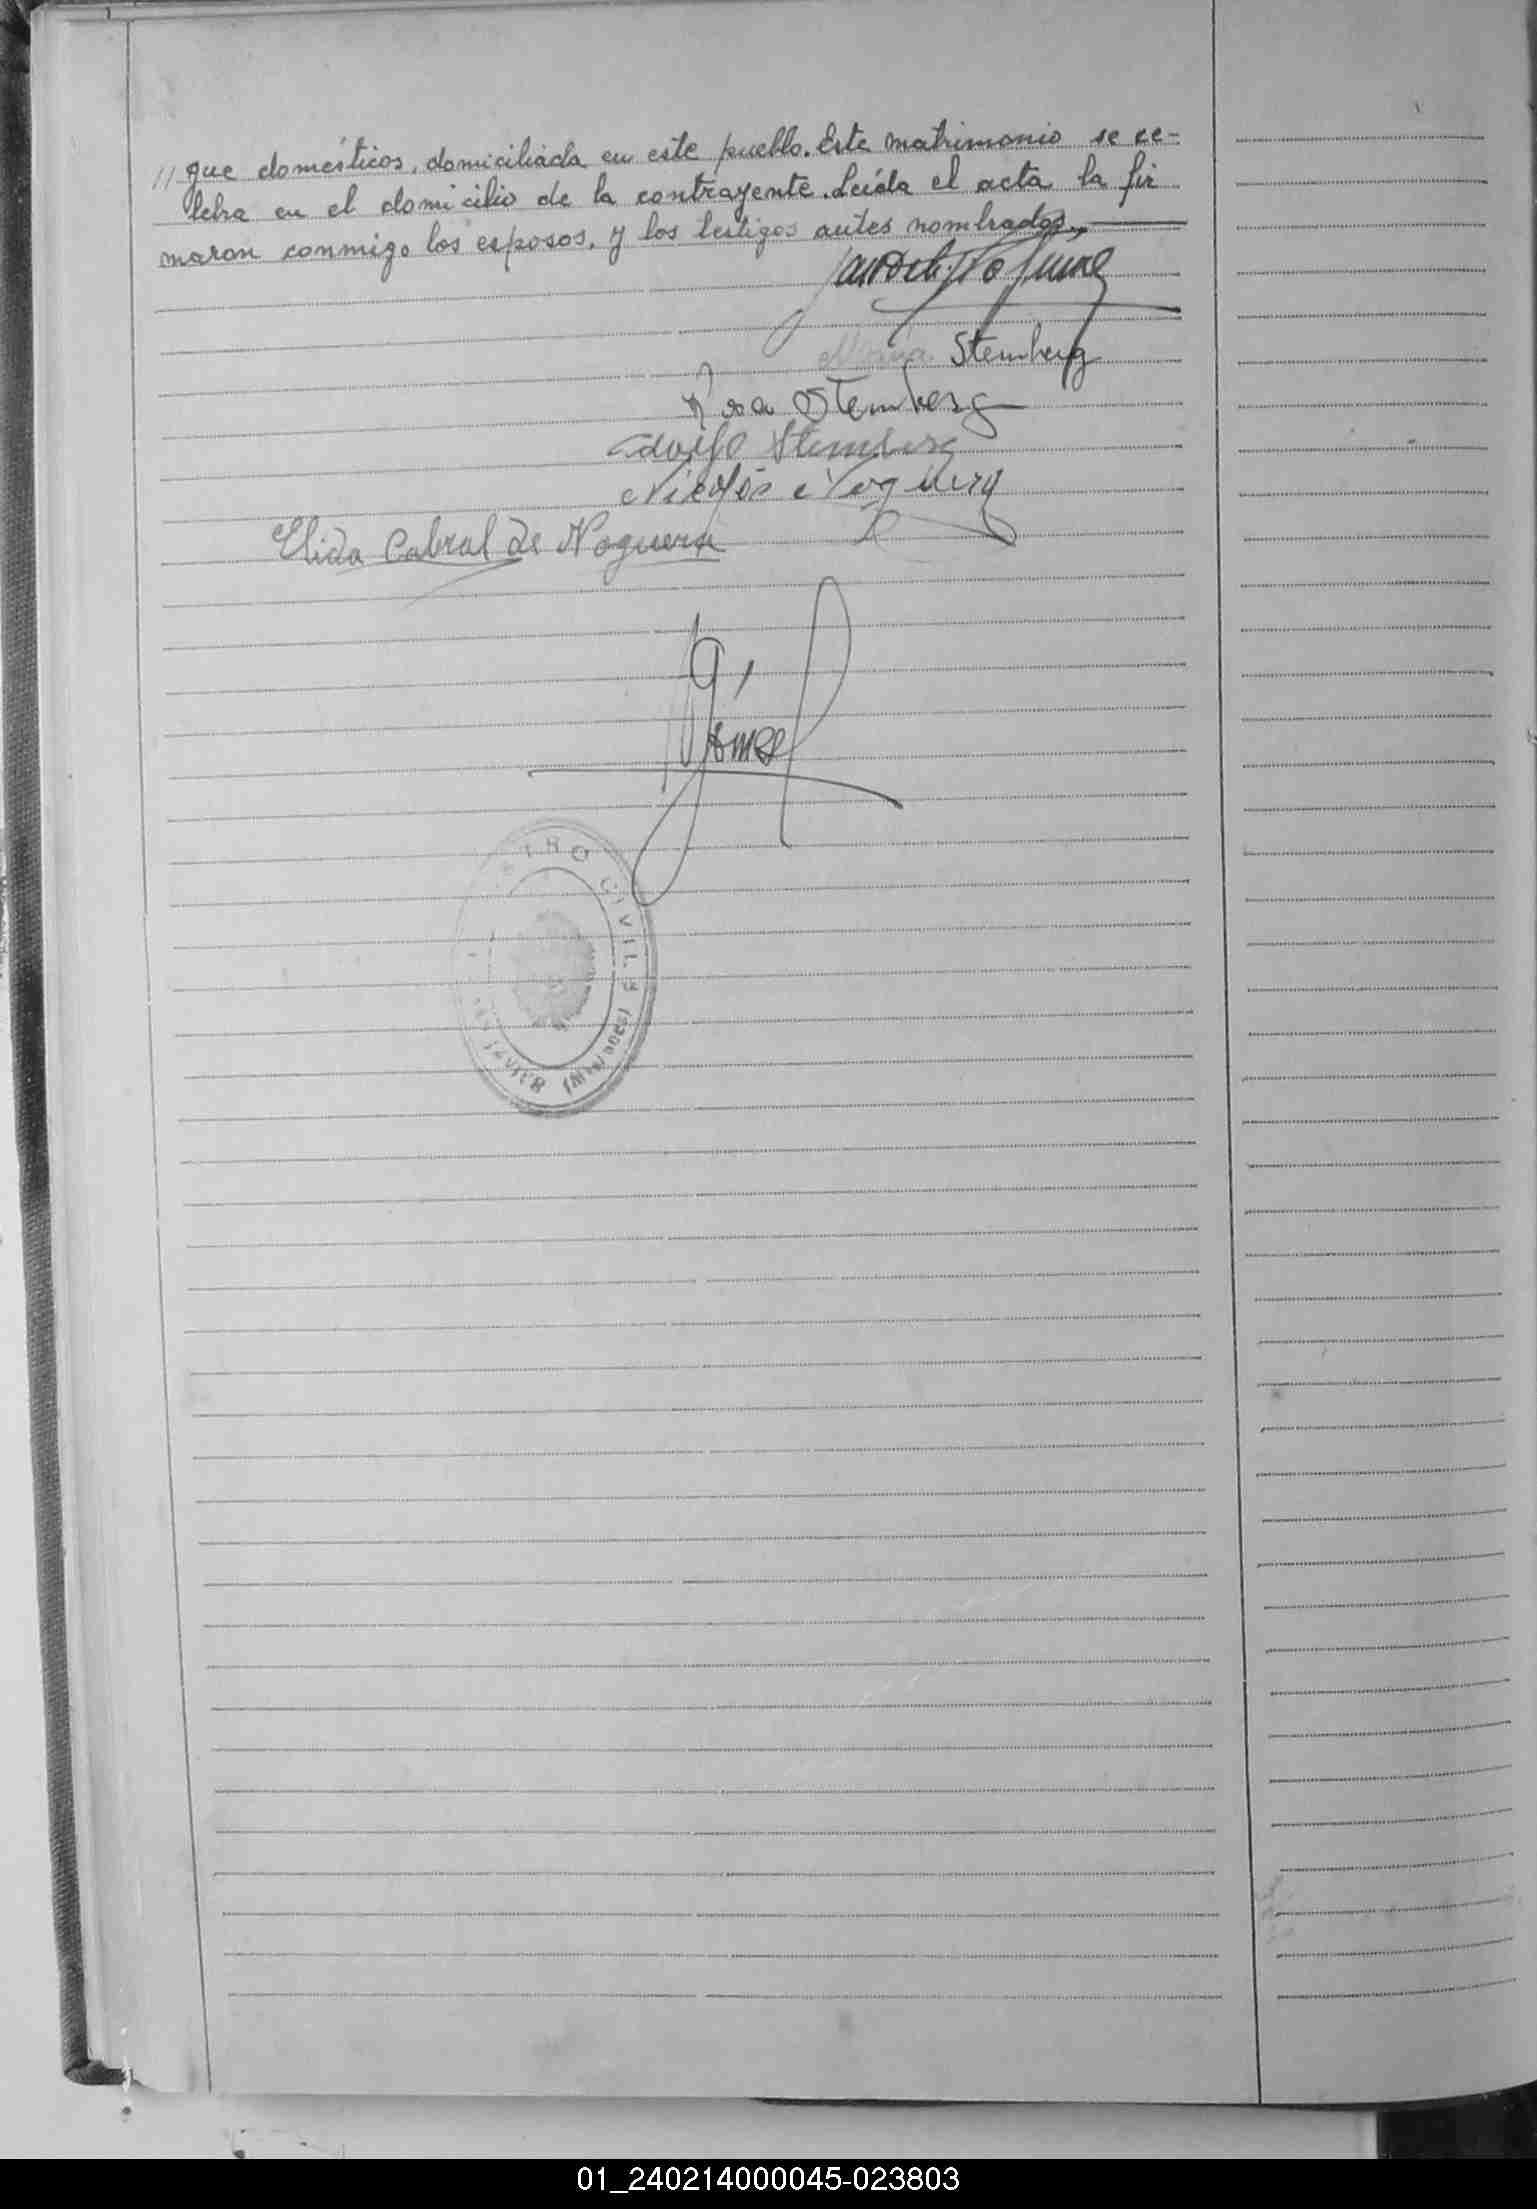 // que domésticos, domiciliada en este pueblo. Este matrimonio se ce-
lebra en el domicilio de la contrayente. Leída el acta la fir
maron conmigo los esposos, y los testigos antes nombrados.,
María Stemberg
Rosa Stemberg
Adolfo Stemberg
Nicolás Noguera
Elida Cabral de Noguera
CIVIL
JAVIER (Misiones)
01_240214000045-023803